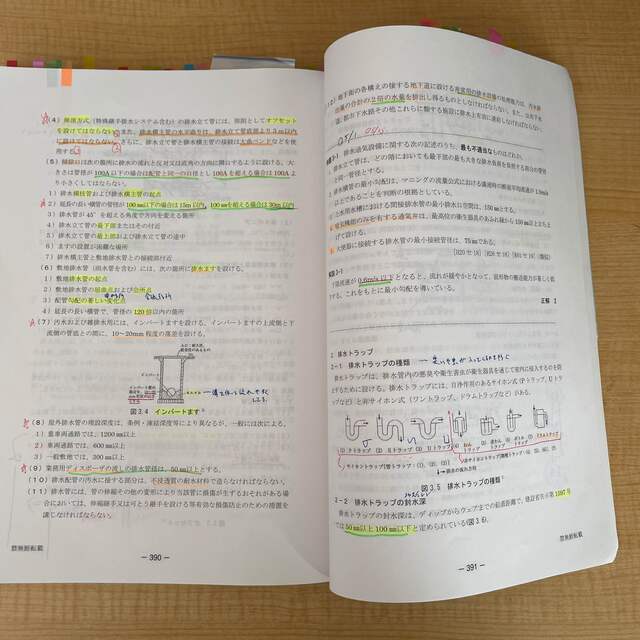 (4) 伸頂通気方式(特殊継手排水システム含む)の排水立て管には,原則としてオフセット
を設けてはならない。また,排水横主管の水平曲りは,排水立て管底部より3m以内
に設けてはならない。さらに,排水立て管と排水横主管の接続は大曲ベンドなどを使
用する。
(5) 掃除口は次の箇所に排水の流れと反対又は直角の方向に開口するように設ける。大
きさは管径が100A以下の場合は配管と同一の口径とし100Aを超える場合は100Aよ
り小さくしてはならない。
1) 排水横枝管および排水横主管の起点
2) 延長の長い横管の管径が100mm以下の場合は15m以内,100mmを超える場合は30m以内
3) 排水管が45°を超える角度で方向を変える箇所
4) 排水立て管の最下部またはその付近
5) 排水立て管の最上部および排水立て管の途中
6) ますの設置が困難な場所
7) 排水横主管と敷地排水管の接続部付近
(6) 敷地排水管(雨水管を含む)には,次の箇所に排水ますを設ける。
1) 敷地排水管の起点
2) 敷地排水管の屈曲点および会所点
3) 配管勾配の著しい変化点
4) 延長の長い横管で,管径の120倍以内の箇所
(7) 汚水および雑排水用には,インバートますを設ける。インバートますの上流側と下
流側の管底との間に,10〜20mm程度の落差を設ける。
図3.4 インバートます
(8) 屋外排水管の埋設深度は,条例・凍結深度等により異なるが,一般には次による。
1) 重車両通路では,1200mm以上
2) 車両通路では,600mm以上
3) 一般敷地では,300mm以上
(9) 業務用ディスポーザの流しの排水管径は,50mm以上とする。
(10) 排水配管の汚水に接する部分は,不浸透質の耐水材料で造らなければならない。
(11) 排水管には,管の伸縮その他の変形により当該管に損傷が生ずるおそれがある場
合においては,伸縮継手又は可とう継手を設ける等有効な損傷防止のための措置を
講じなければならない。
禁無断転載
― 390 ―
(12) 地下街の各構えの接する地下道に設ける
の合計の2倍の水量を排出し得るものとしなければならない。
排水通気設備に関する次の記述のうち,最も不適当なものはどれか。
排水立て管は,どの階においても最下部の最も大きな排水負荷を負担する部分の管径
と同一管径とする。
排水横管の最小勾配は,マニングの流量公式における満流時の断面平均流速が
以上であることを判断の根拠としている。
雨水用水槽における間接排水管の最小排水口空間は,150mmとする。
げて設ける。
大便器に接続する排水管の最小接続管径は,75mmである。
下限流速が0.6m/s以下となると,流れが緩やかとなって,固形物の搬送能力が著しく低
下する。これをもとに最小勾配を導いている。
正解 2
2 排水トラップ
2-1 排水トラップの種類
排水トラップは,排水管内の悪臭や衛生害虫が衛生器具を通じて室内に侵入するのを防
止するために設ける。排水トラップには,自浄作用のあるサイホン式(Pトラップ,Uトラ
ップなど)と非サイホン式(ワントラップ,ドラムトラップなど)がある。
図3.5 排水トラップの種類
2-2 排水トラップの封水深
排水トラップの封水深は,ディップからウェアまでの鉛直距離で,建設省告示第1597号
では50mm以上100mm以下と定められている(図3.6)。
― 391 ―
禁無断転載